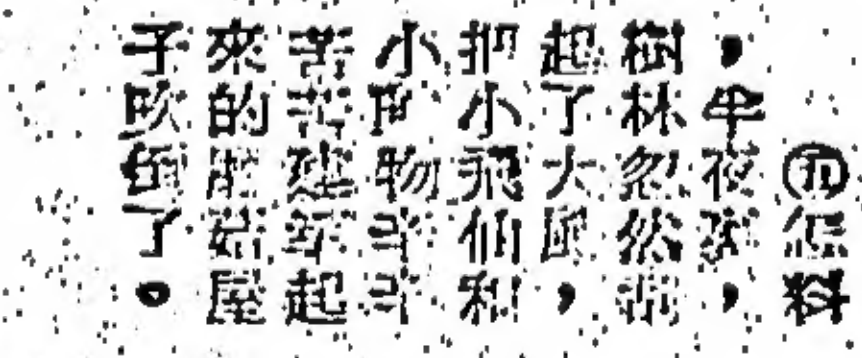 ㊄怎料
，半夜裡，
樹林忽然刮
起了大風，
把小飛仙和
小動物辛辛
苦苦建築起
來的蘑菇屋
子吹倒了。